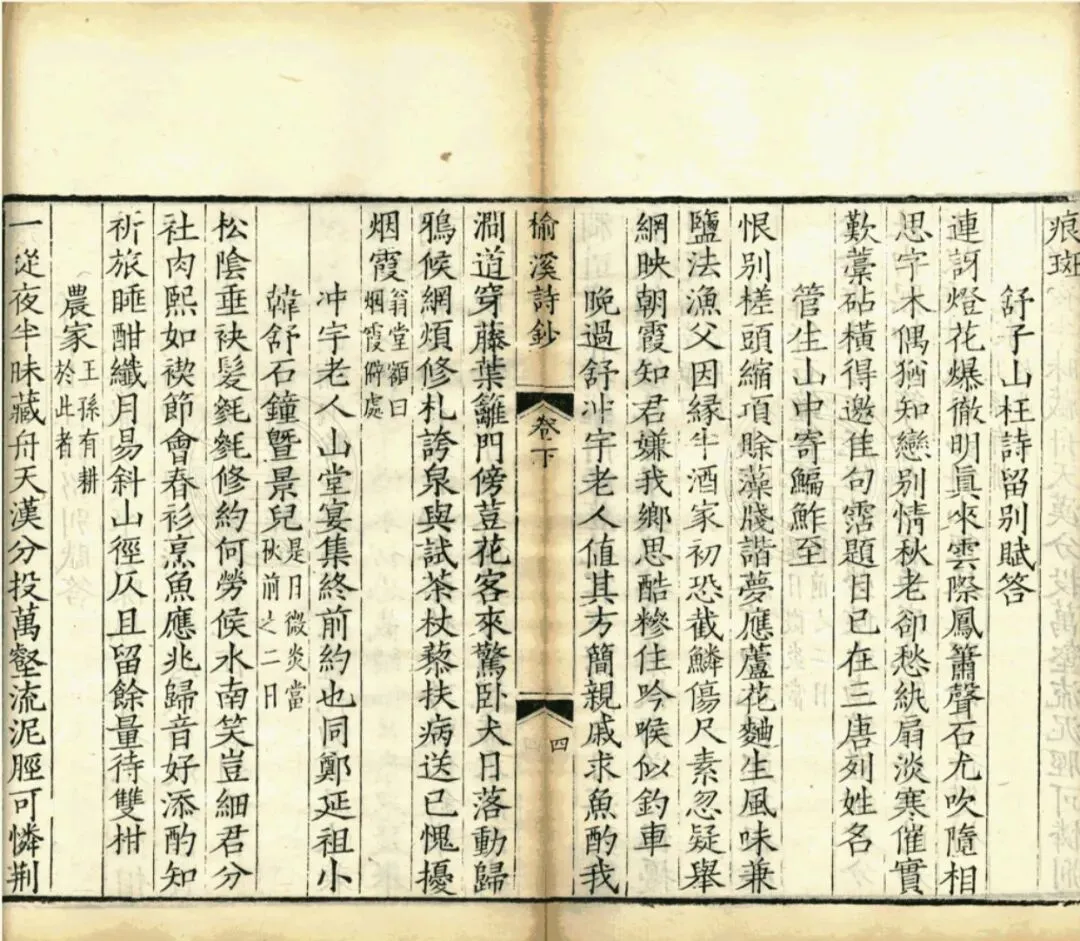 痕斑
舒子山枉詩留別賦答
連訝燈花爆徹明真來雲際鳳簫聲石尤吹隨相
思字木偶猶知戀別情秋老卻愁紈扇淡寒催實
歎藁砧橫得邀佳句霑題目已在三唐列姓名
管生山中寄鯿鮓至
恨別槎頭縮項賖藻牋諧夢應蘆花麯生風味兼
鹽法漁父因緣半酒家初恐截鱗傷尺素忽疑舉
網映朝霞知君嫌我鄉思酷糝住吟喉似釣車
晚過舒冲宇老人值其方簡親戚求魚酌我
榆溪詩鈔
卷下
四
澗道穿藤葉籬門傍荳花客來驚臥犬日落動歸
鴉候網煩修札誇泉與試茶杖藜扶病送已愧擾
烟霞翁堂額曰烟霞僻處
冲宇老人山堂宴集終前約也同鄭延祖小
韓舒石鐘暨景兒是日微炎當秋前之二日
松陰垂袂髮毿毿修約何勞候水南笑豈細君分
社肉熙如禊節會春衫烹魚應兆歸音好添酌知
祈旅睡酣纖月易斜山徑仄且留餘量待雙柑
農家王孫有耕於此者
一從夜半昧藏舟天漢分投萬壑流泥脛可憐荆